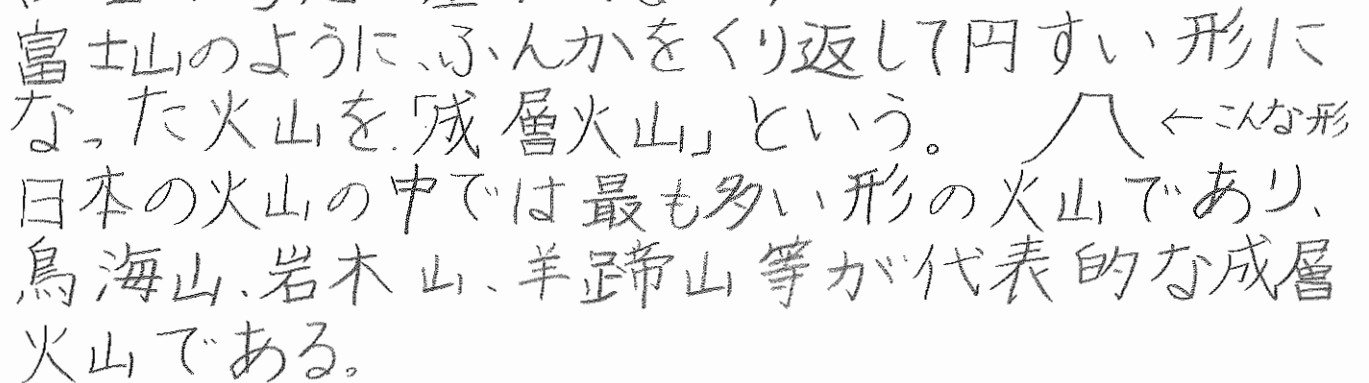 富士山のように、ふんかをくり返して円すい形に
なった火山を「成層火山」という。 ←こんな形
日本の火山の中では最も多い形の火山であり、
鳥海山、岩木山、羊蹄山等が代表的な成層
火山である。